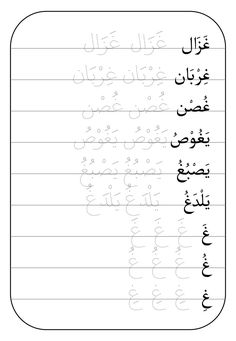 غَزَال غَزَال غَزَال
غِرْبَان غِرْبَان غِرْبَان
غُصْن غُصْن غُصْن
يَغُوْصُ يَغُوْصُ يَغُوْصُ
يَصْبُغُ يَصْبُغُ يَصْبُغُ
يَلْدَغُ يَلْدَغُ يَلْدَغُ
غَ غَ غَ غَ
غُ غُ غُ غُ
غِ غِ غِ غِ